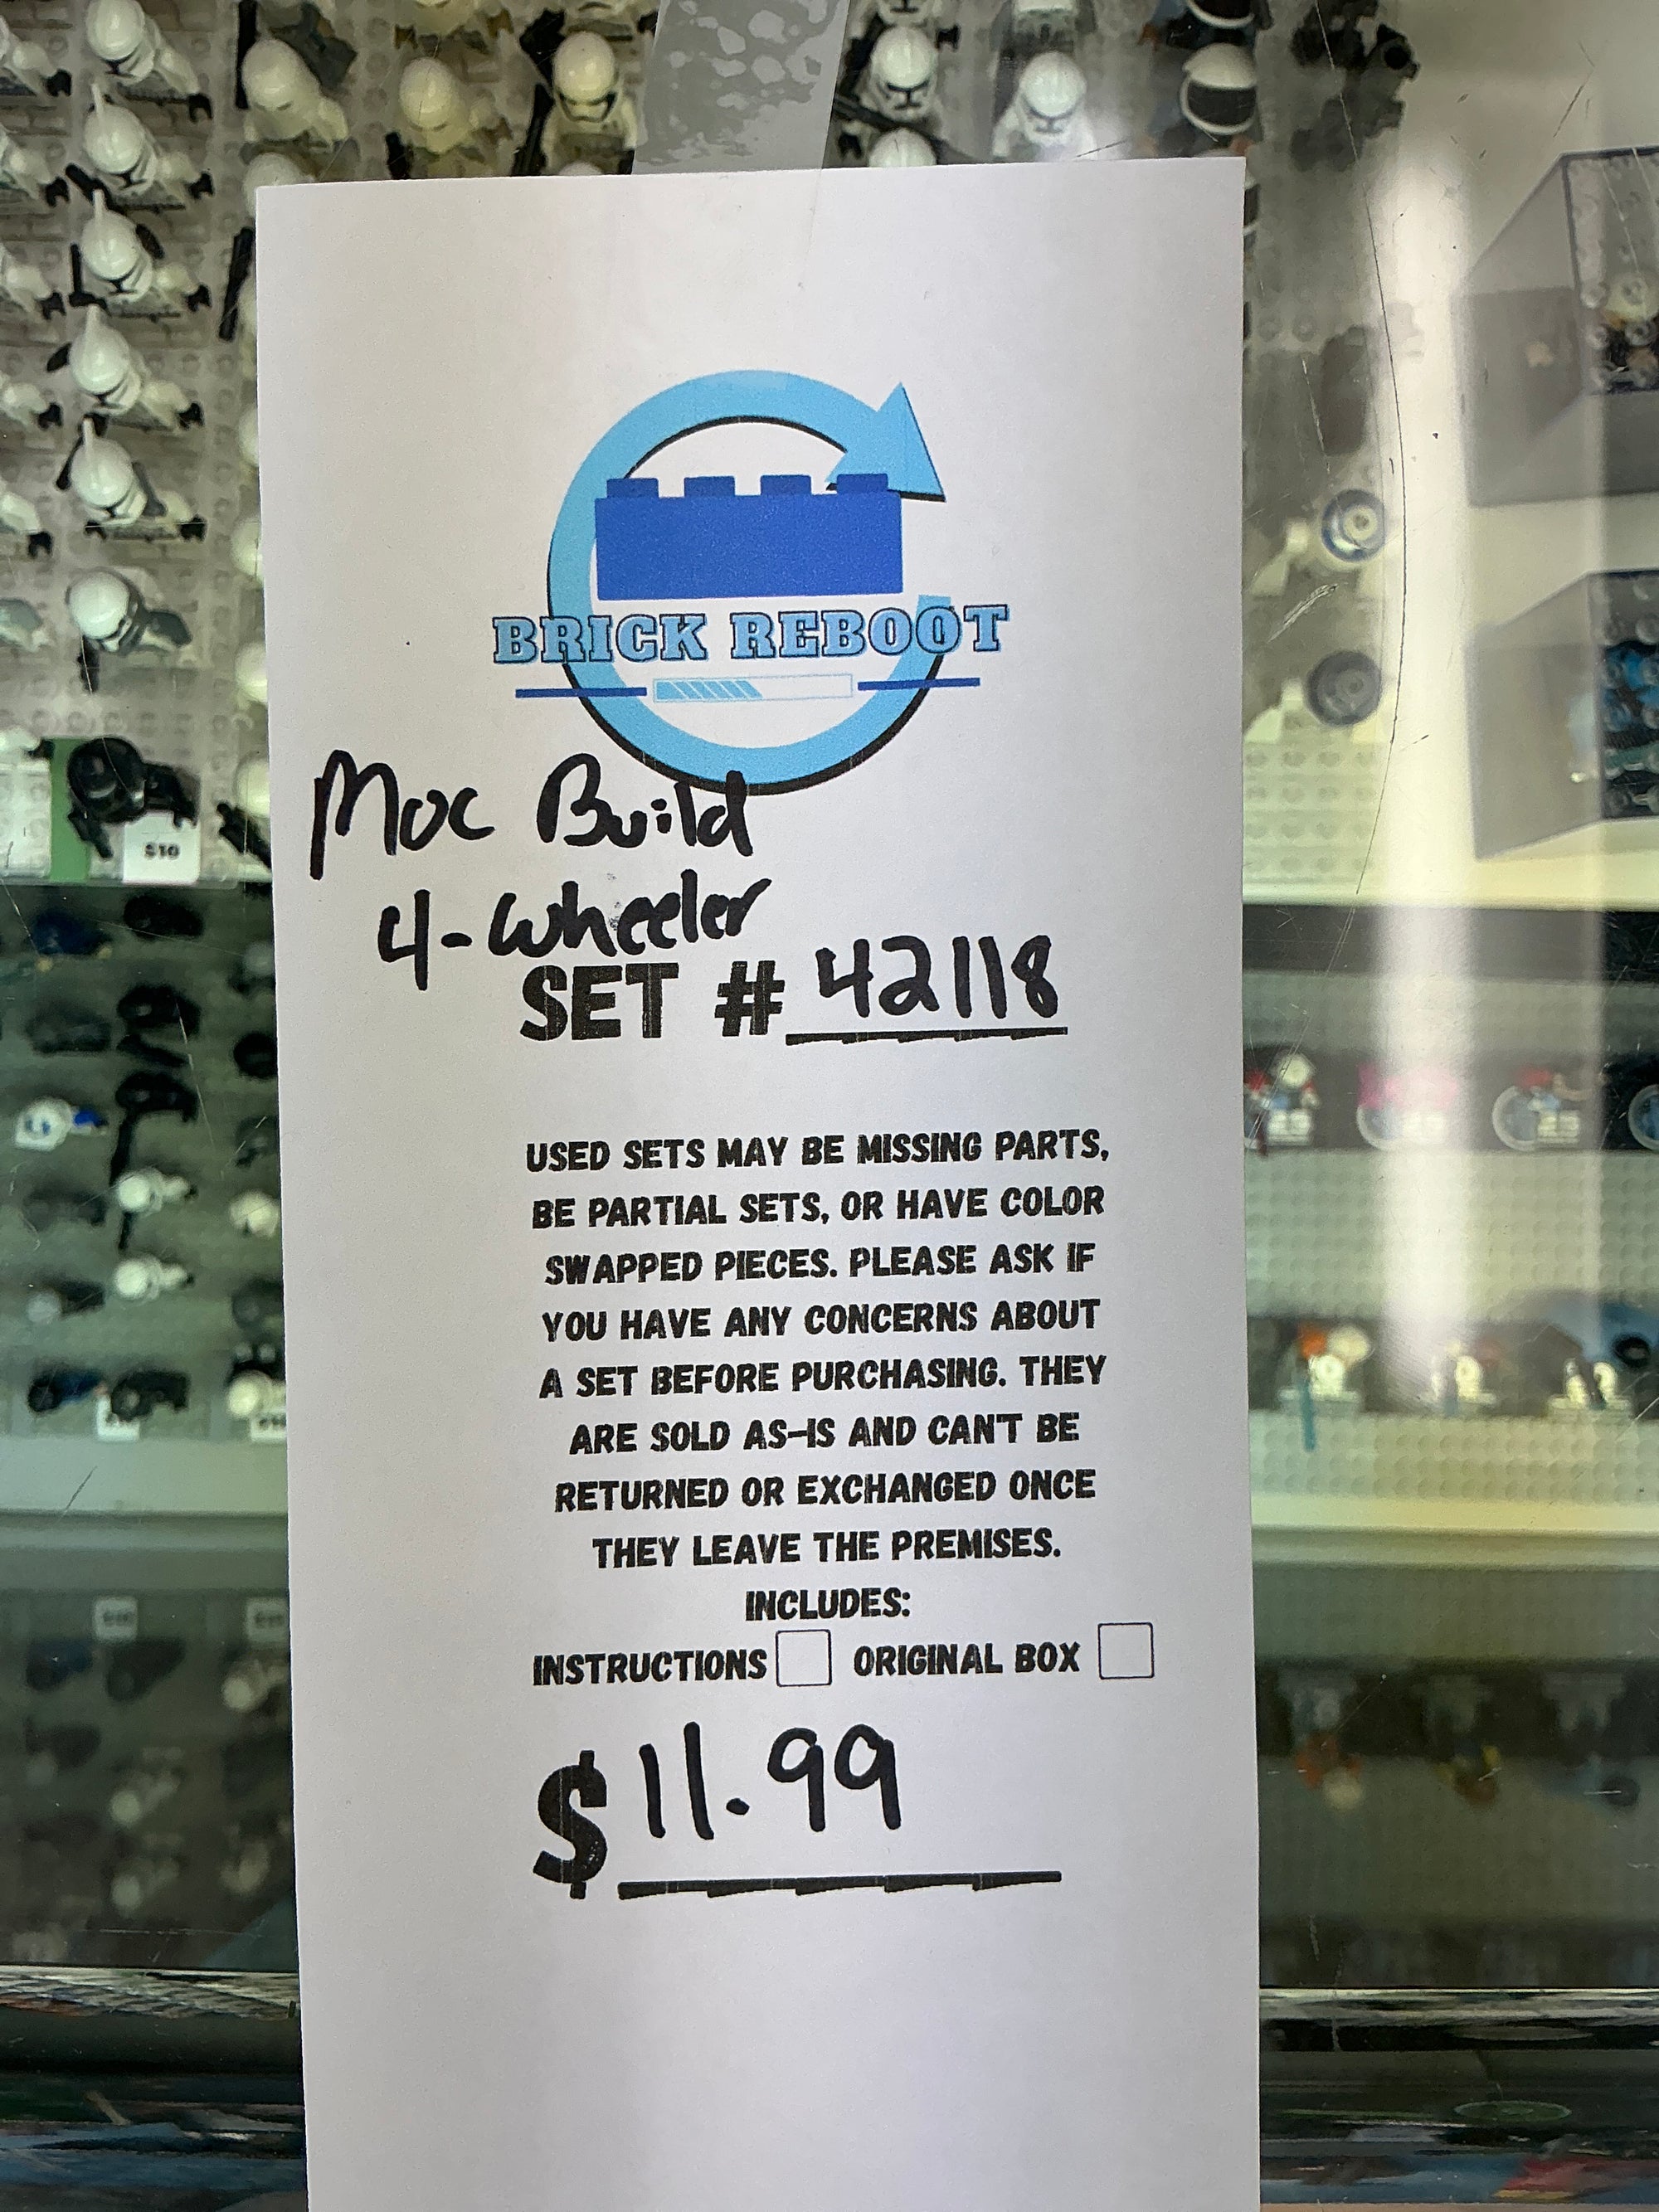 BRICK REBOOT
Moc Build
4-Wheeler
SET # 42118
USED SETS MAY BE MISSING PARTS,
BE PARTIAL SETS, OR HAVE COLOR
SWAPPED PIECES. PLEASE ASK IF
YOU HAVE ANY CONCERNS ABOUT
A SET BEFORE PURCHASING. THEY
ARE SOLD AS-IS AND CAN'T BE
RETURNED OR EXCHANGED ONCE
THEY LEAVE THE PREMISES.
INCLUDES:
INSTRUCTIONS ORIGINAL BOX
$11.99
$10